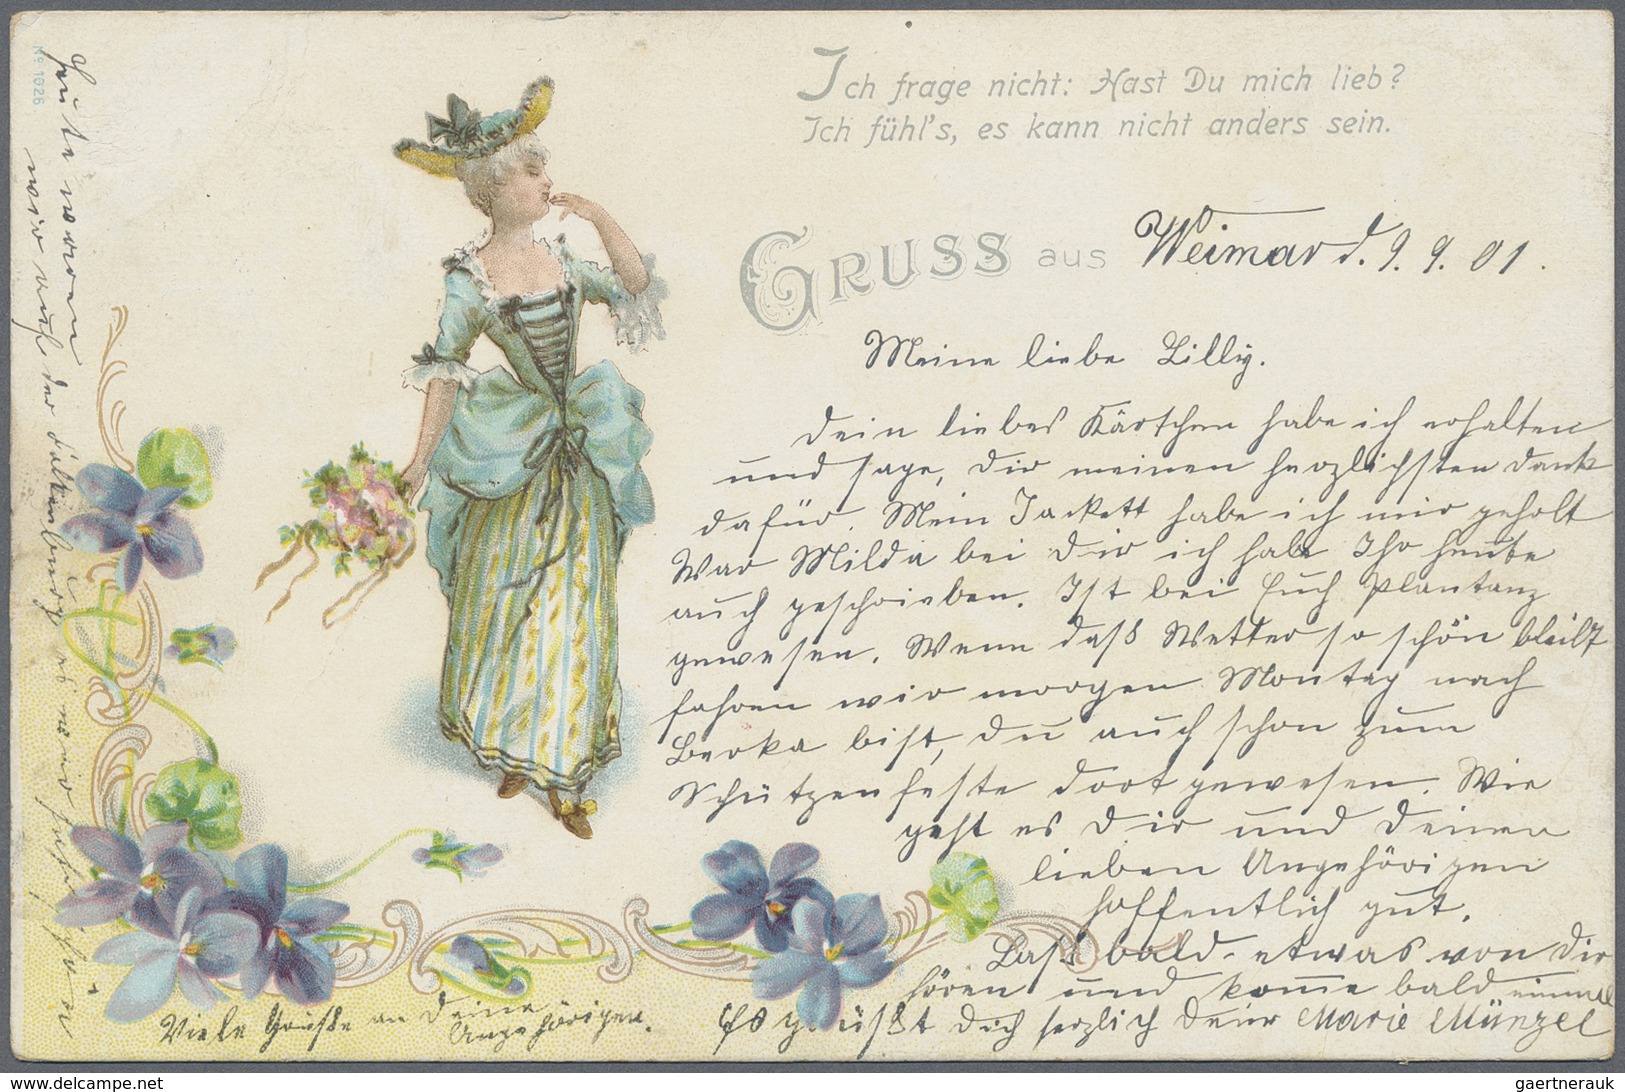 No 1026
Ich frage nicht: Hast Du mich lieb?
Ich fühl's, es kann nicht anders sein.
GRUSS aus Weimar d. 9. 9. 01.
Meine liebe Lilly.
Dein liebes Kärtchen habe ich erhalten
und sage, Dir meinen herzlichsten Dank
dafür. Mein Jackett habe ich mir geholt
War Milda bei Dir ich habe Ihr heute
auch geschrieben. Ist bei Euch
gewesen. Wenn daß Wetter so schön bleibt
fahren wir morgen Montag nach
Berka bist, Du auch schon zum
Schützenfeste dort gewesen. Wie
geht es Dir und Deinen
lieben Angehörigen
hoffentlich gut.
Laß bald etwas von Dir
hören und komme bald einmal
Es grüßt Dich herzlich Deine Marie Münzel
Viele Grüße an Deine
Angehörigen.
Heute waren
wir auf der